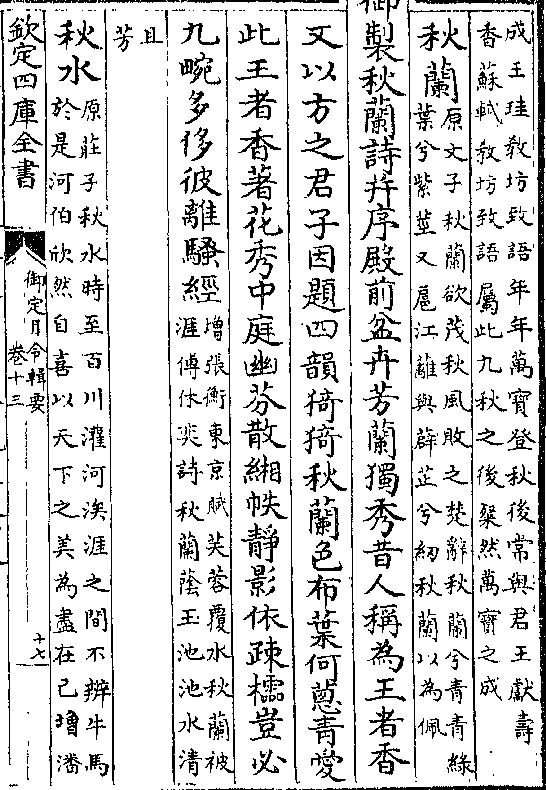 成王珪教坊致語年年萬寶登秋後常與君王獻壽
香蘇軾教坊致語屬此九秋之後粲然萬寶之成
秋蘭原文子秋蘭欲茂秋風敗之楚辭秋蘭兮青青綠
葉兮紫莖又扈江蘺與辟芷兮紉秋蘭以為佩
御製秋蘭詩并序殿前盆卉芳蘭獨秀昔人稱為王者香
又以方之君子因題四韻猗猗秋蘭色布葉何蔥青愛
此王者香著花秀中庭幽芬散緗帙靜影依疎櫺豈必
九畹多侈彼離騷經增張衡東京賦芙蓉覆水秋蘭被
涯傅休奕詩秋蘭蔭玉池池水清
且
芳
秋水原莊子秋水時至百川灌河涘涯之間不辨牛馬
於是河伯欣然自喜以天下之美為盡在己增潘
欽定四庫全書
御定月令輯要
卷十三
十七